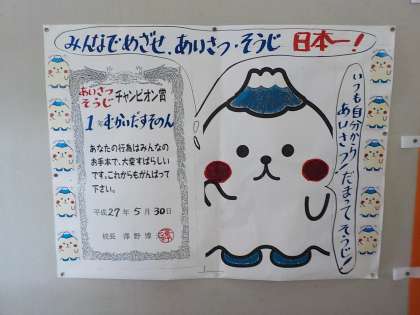 みんなでめざせ、あいさつ・そうじ 日本一!
あいさつ
そうじ チャンピオン賞
1年 むかいだすそのん
あなたの行為はみんなの
お手本で、大変すばらしい
です。これからもがんばって
下さい。
平成27年 5月 30日
校長 澤野 博
いつも自分から
あいさつ!だまってそうじ!